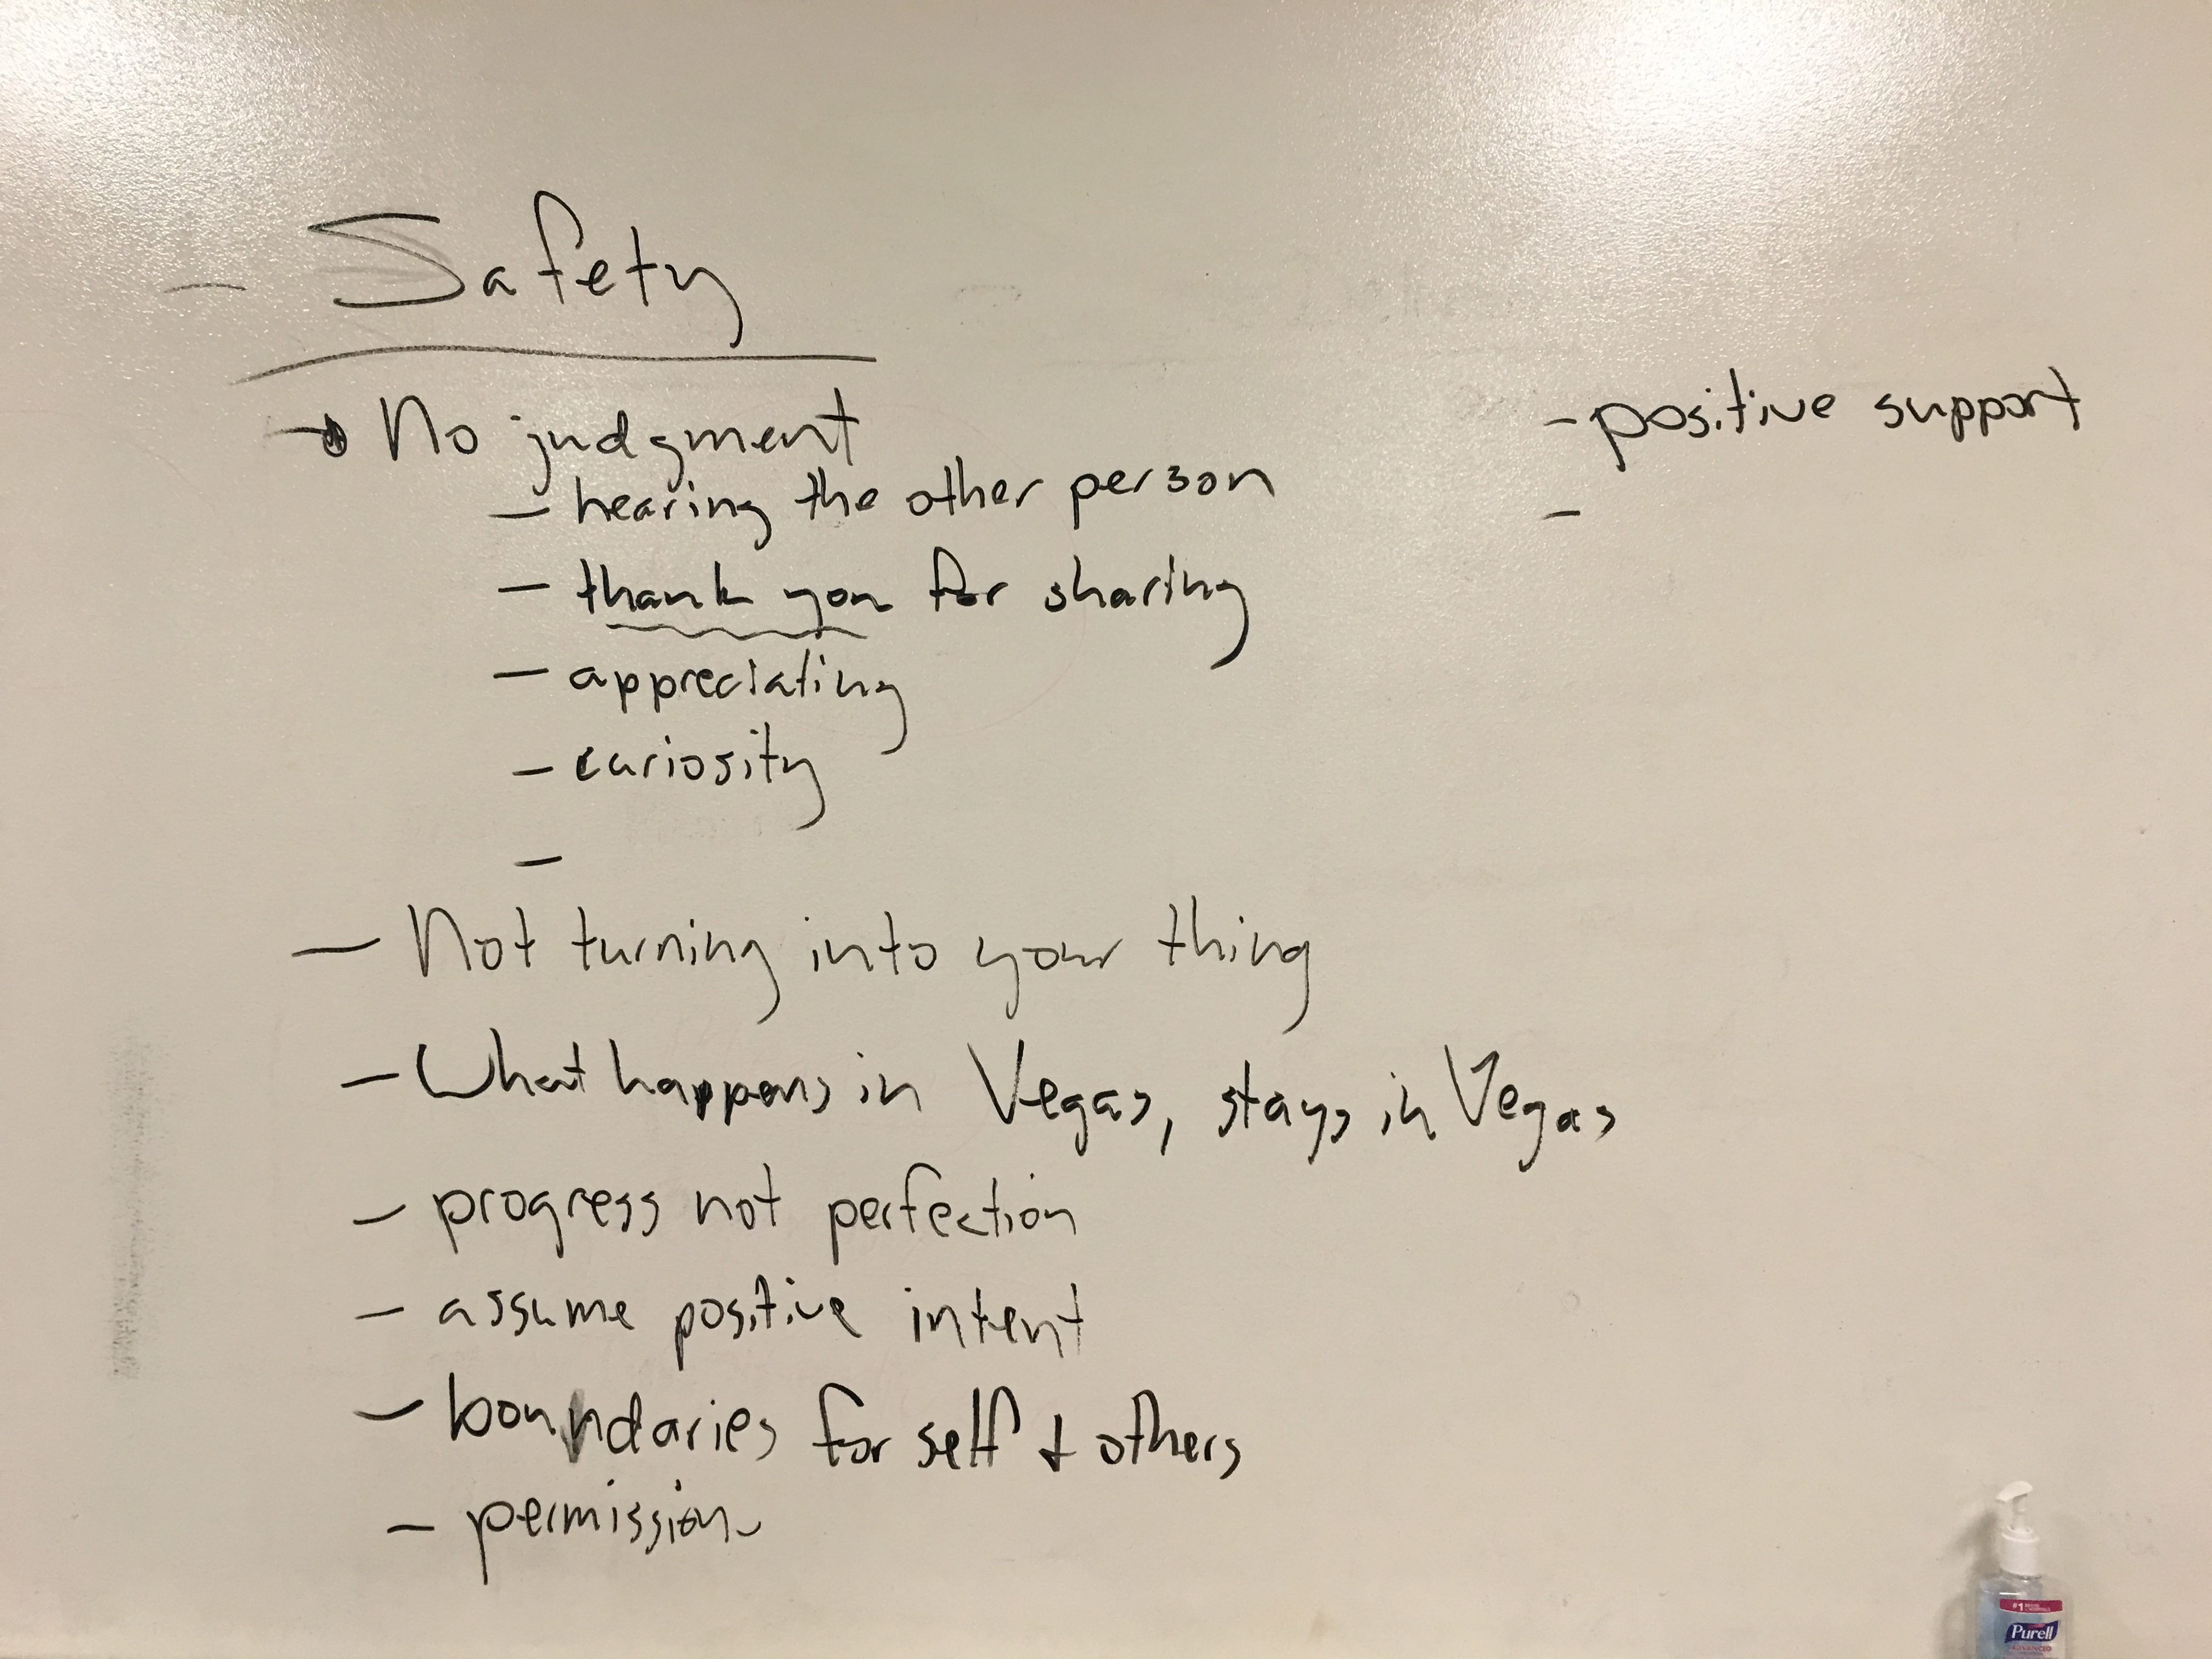 - Safety
- No judgment
- hearing the other person
- thank you for sharing
- appreciating
- curiosity
-
- Not turning into your thing
- What happens in Vegas, stays in Vegas
- progress not perfection
- assume positive intent
- boundaries for self + others
- permission
- positive support
-
#1
Purell
ADVANCED